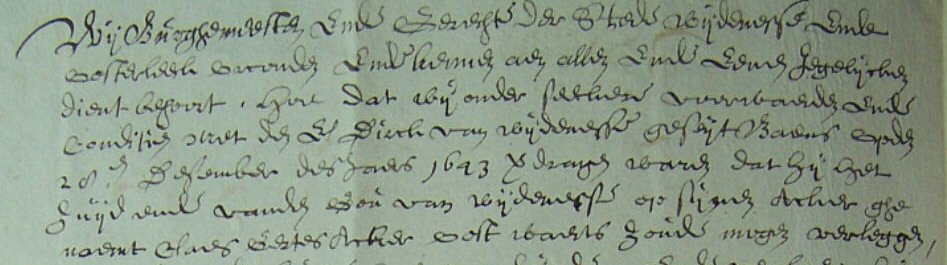 Wij Burghemeesters Ende Gerechte der Stede Wijdenesse Ende
Oosterleeck oirconden Ende kennen aen allen Ende Eenen Jegelijcken
dient behoort. Hoe dat wij onder seeckere voorwaerden Ende
Conditien met den E Dirck van Wijdenesse geseijt Baens opden
28en December des Jaers 1643 verdragen waren dat hij het
Zuijd eende vanden Gou van Wijdenesse op sijnen Acker ghe
naemt Claes Gertes Acker Oost waerts zoude mogen verleggen,